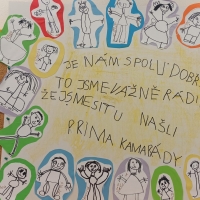 JE NÁM SPOLU DOBŘE
TO JSME VAŽNĚ RÁDI
ŽE JSME SI TU NAŠLI
PRIMA KAMARÁDY